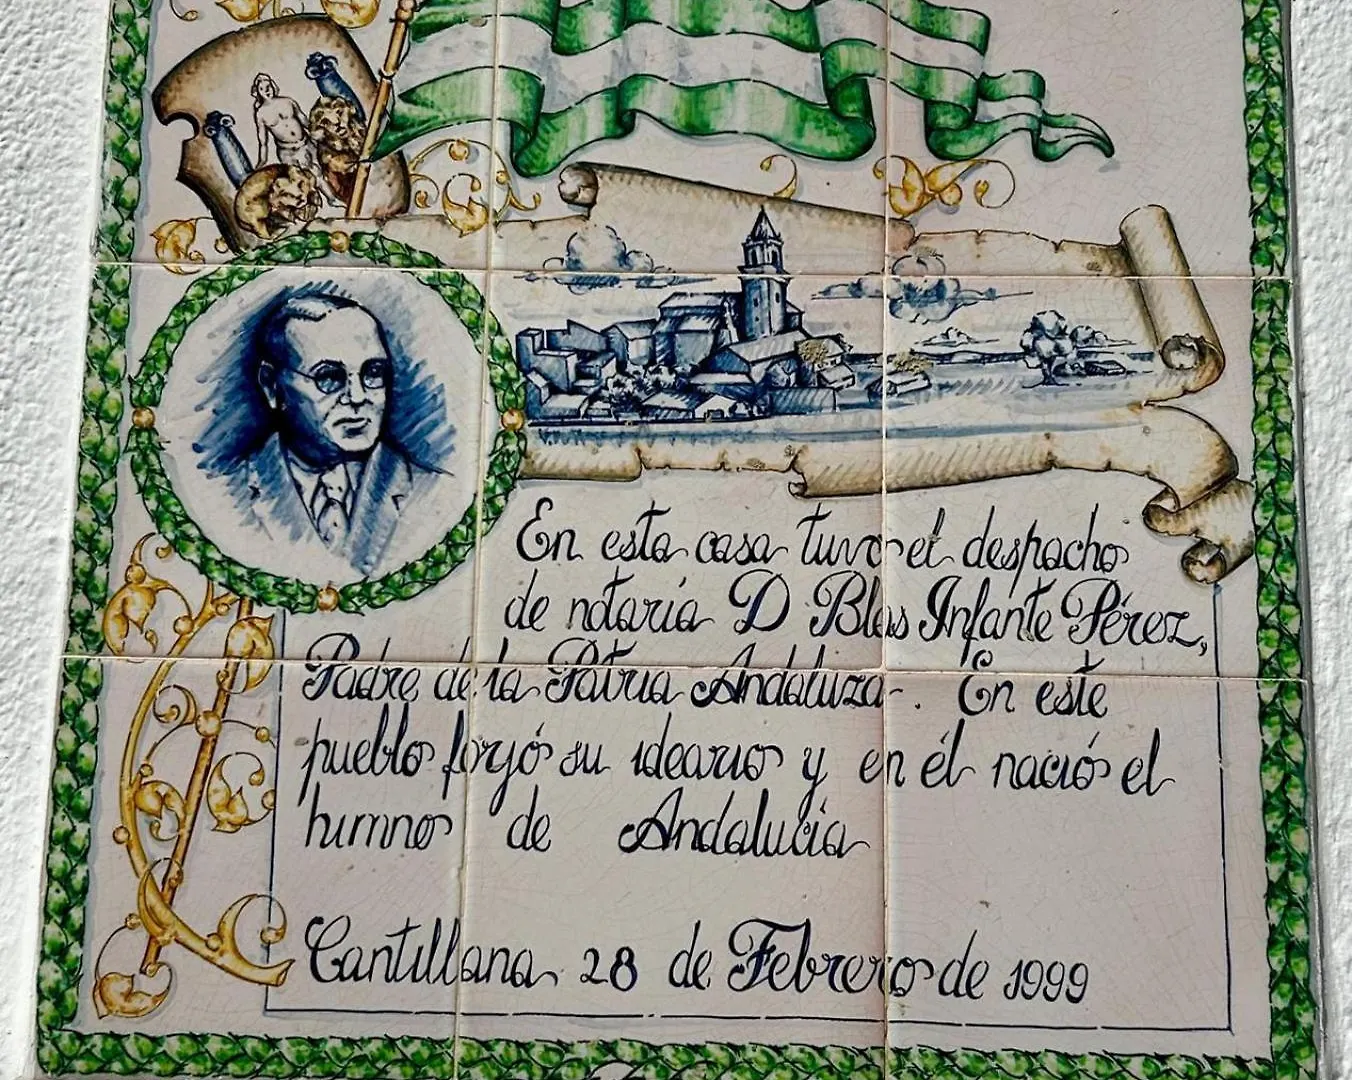 En esta casa tuvo el despacho
de notaría D Blas Infante Pérez,
Padre de la Patria Andaluza. En este
pueblo forjó su ideario y en él nació el
himno de Andalucia
Cantillana 28 de Febrero de 1999